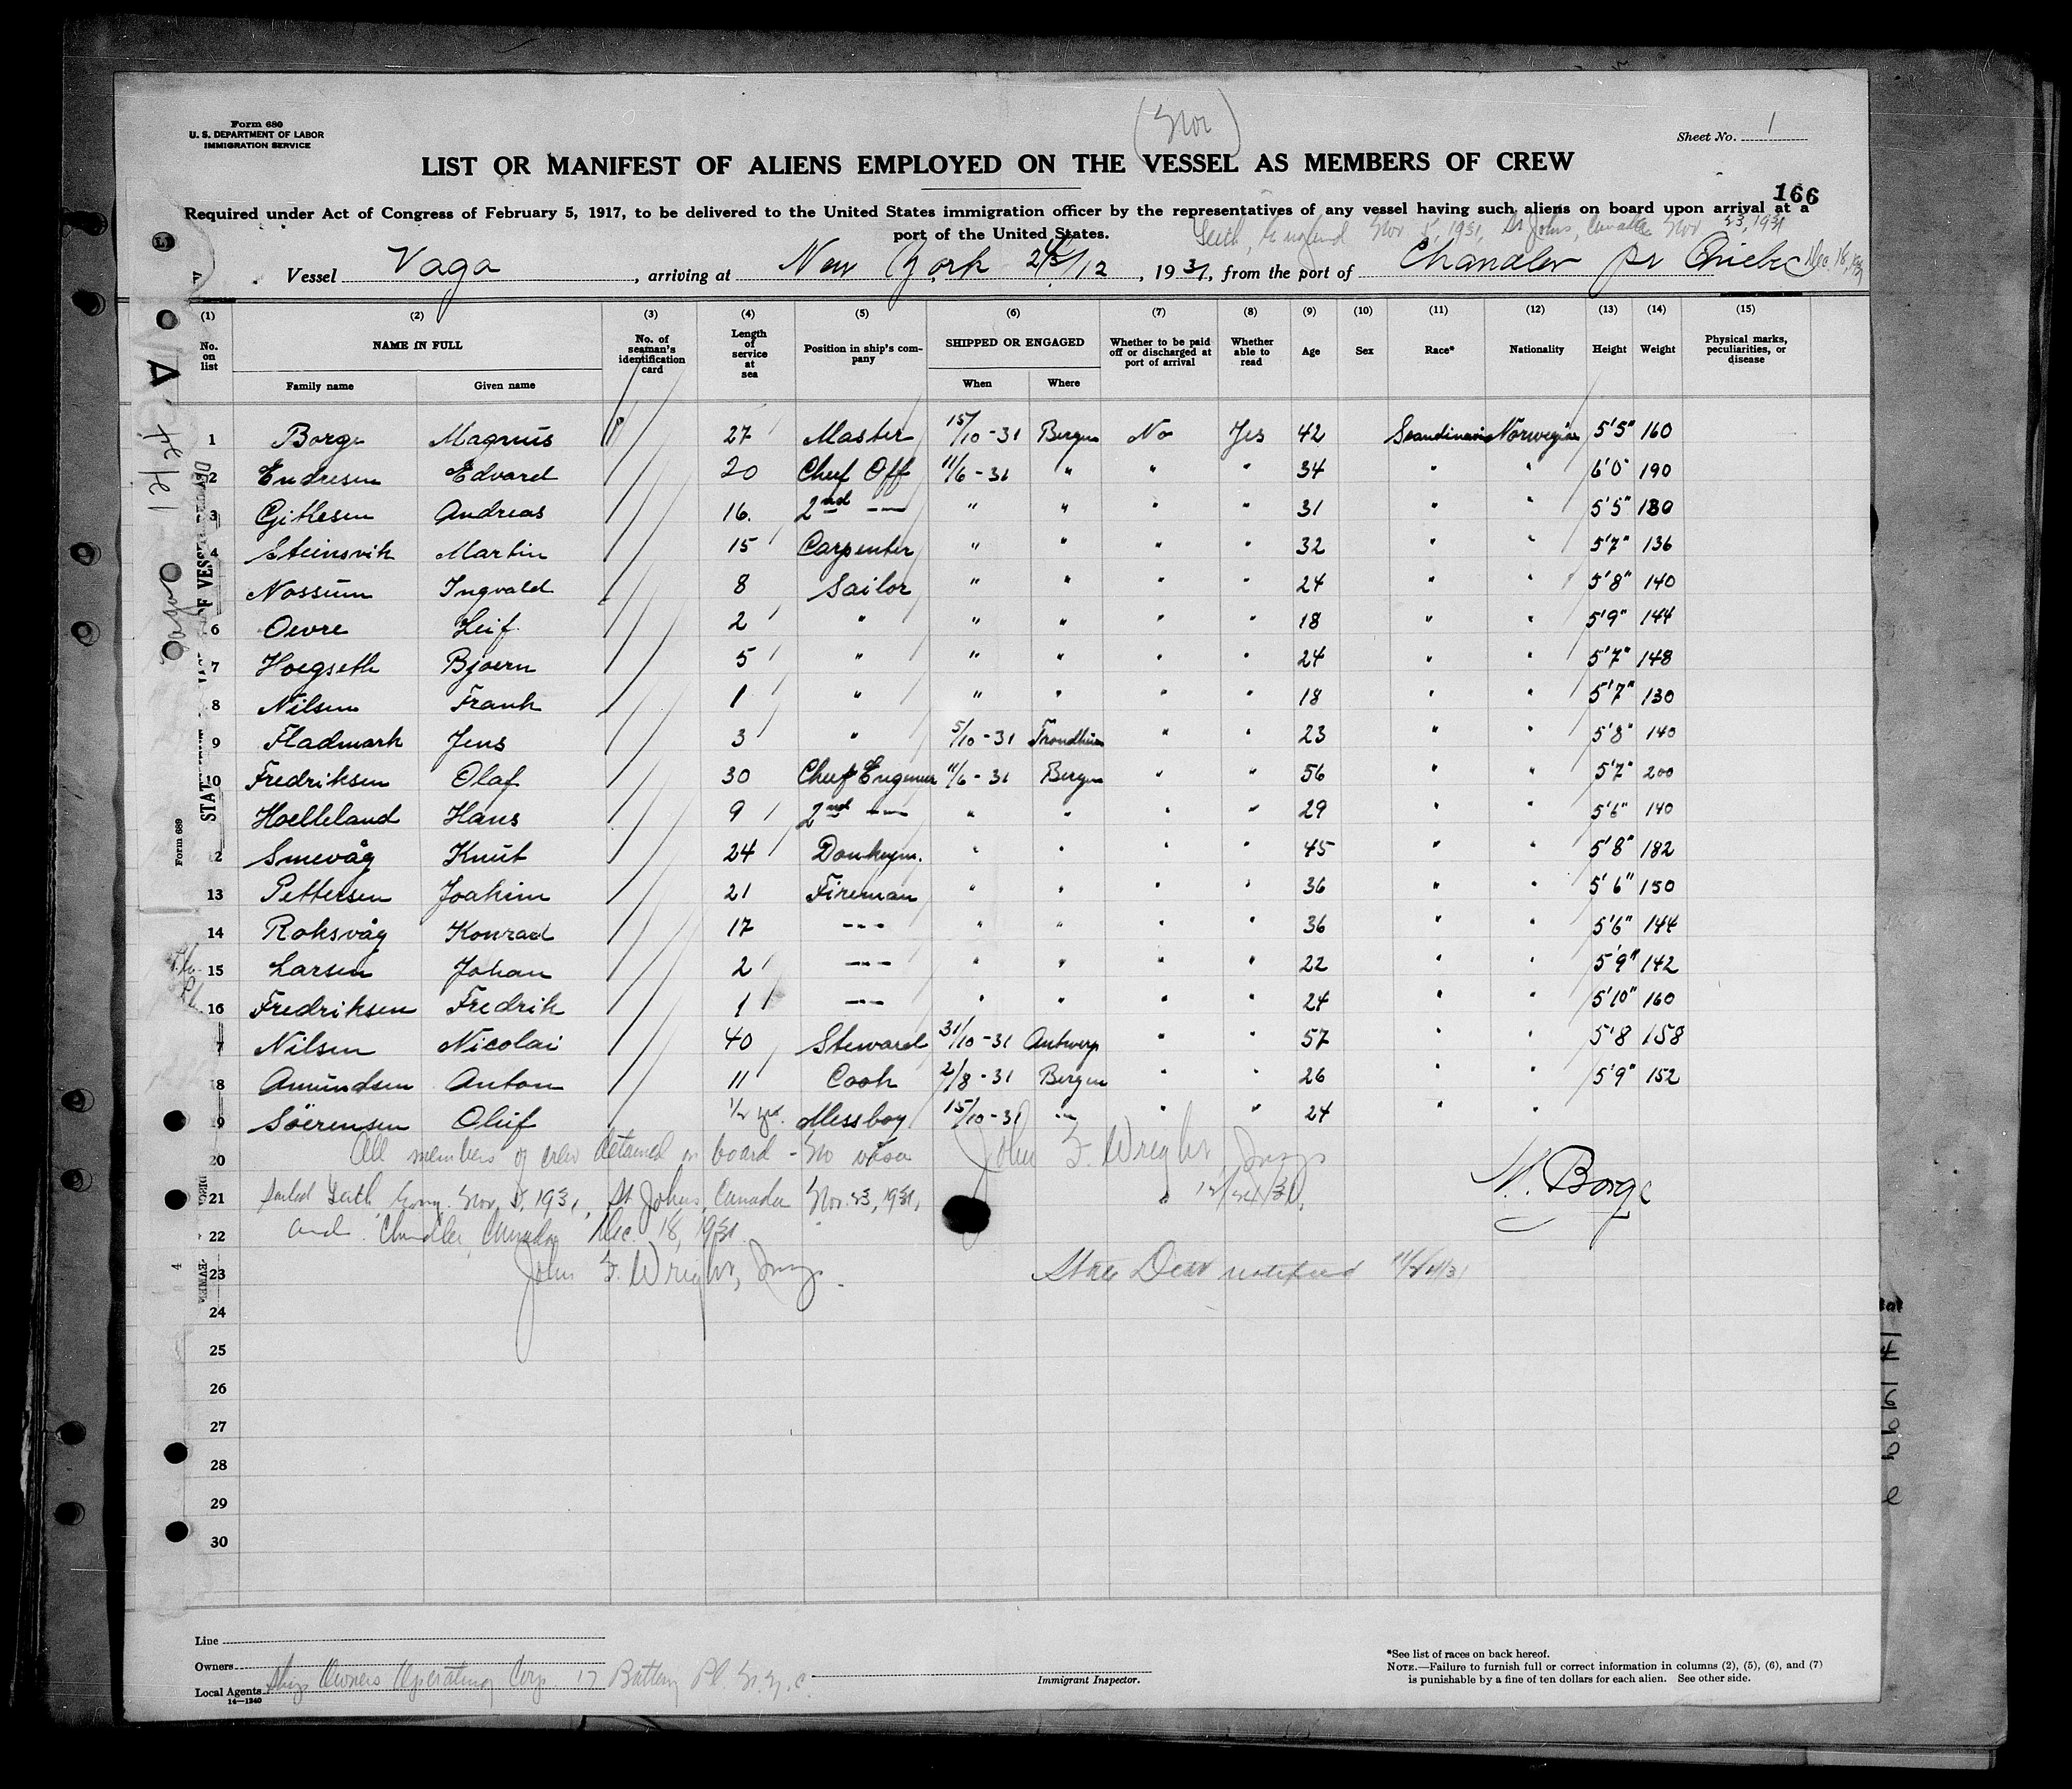 Form 680
U. S. DEPARTMENT OF LABOR
IMMIGRATION SERVICE
(Nor)
Sheet No. 1
LIST OR MANIFEST OF ALIENS EMPLOYED ON THE VESSEL AS MEMBERS OF CREW
166
Required under Act of Congress of February 5, 1917, to be delivered to the United States immigration officer by the representatives of any vessel having such aliens on board upon arrival at a
port of the United States.
Leith, England Nov 5, 1931, St Johns, Canada Nov 23, 1931
Vessel Vaga, arriving at New York 24/12, 1931, from the port of Chandler pr Quebec Dec. 18,
(1) (2) (3) (4) (5) (6) (7) (8) (9) (10) (11) (12) (13) (14) (15)
No. on list NAME IN FULL No. of seaman's identification card Length of service at sea Position in ship's company SHIPPED OR ENGAGED Whether to be paid off or discharged at port of arrival Whether able to read Age Sex Race* Nationality Height Weight Physical marks, peculiarities, or disease
Family name Given name When Where
1 Borge Magnus 27 Master 15/10-31 Bergen No Yes 42 Scandinavian Norwegian 5'5" 160
2 Endresen Edvard 20 Chief Off 11/6-31 " " " 34 " " 6'0" 190
3 Gitlesen Andreas 16. 2nd -- " " " " 31 " " 5'5" 180
4 Steinsvik Martin 15 Carpenter " " " " 32 " " 5'7" 136
Nossum Ingvald 8 Sailor " " " " 24 " " 5'8" 140
6 Oevre Leif 2 " " " " " 18 " " 5'9" 144
7 Hoegseth Bjoern 5 " " " " " 24 " " 5'7" 148
8 Nilsen Frank 1 " " " " " 18 " " 5'7" 130
9 Fladmark Jens 3 " 5/10-31 Trondheim " " 23 " " 5'8" 140
10 Fredriksen Olaf 30 Chief Engineer 11/6-31 Bergen " " 56 " " 5'7" 200
Hoelleland Hans 9 2nd -- " " " " 29 " " 5'6" 140
2 Smevåg Knut 24 Donkeym. " " " " 45 " " 5'8" 182
13 Pettersen Joakim 21 Fireman " " " " 36 " " 5'6" 150
14 Roksvåg Konrad 17 --- " " " " 36 " " 5'6" 144
15 Larsen Johan 2 --- " " " " 22 " " 5'9" 142
16 Fredriksen Fredrik 1 --- " " " " 24 " " 5'10" 160
7 Nilsen Nicolai 40 Steward 31/10-31 Antwerp " " 57 " " 5'8 158
8 Amundsen Anton 11 Cook 2/8-31 Bergen " " 26 " " 5'9" 152
9 Söerensen Oluf 1/2 yrs. Messboy 15/10-31 -"- " " 24 " "
20 All members of crew detained on board - No visa John F. Wright Insp
21 Sailed Leith, Eng. Nov. 5, 1931, St Johns, Canada Nov. 23, 1931, 12/24/31. M. Borge
22 and Chandler, Canada Dec. 18, 1931.
23 John F. Wright, Insp. State Dept notified
24
25
26
27
28
29
30
Line
Owners
Local Agents Ship Owners Operating Corp. 17 Battery Pl. N.Y.C.
14—1240
Immigrant Inspector.
*See list of races on back hereof.
NOTE.—Failure to furnish full or correct information in columns (2), (5), (6), and (7)
is punishable by a fine of ten dollars for each alien. See other side.
Form 689